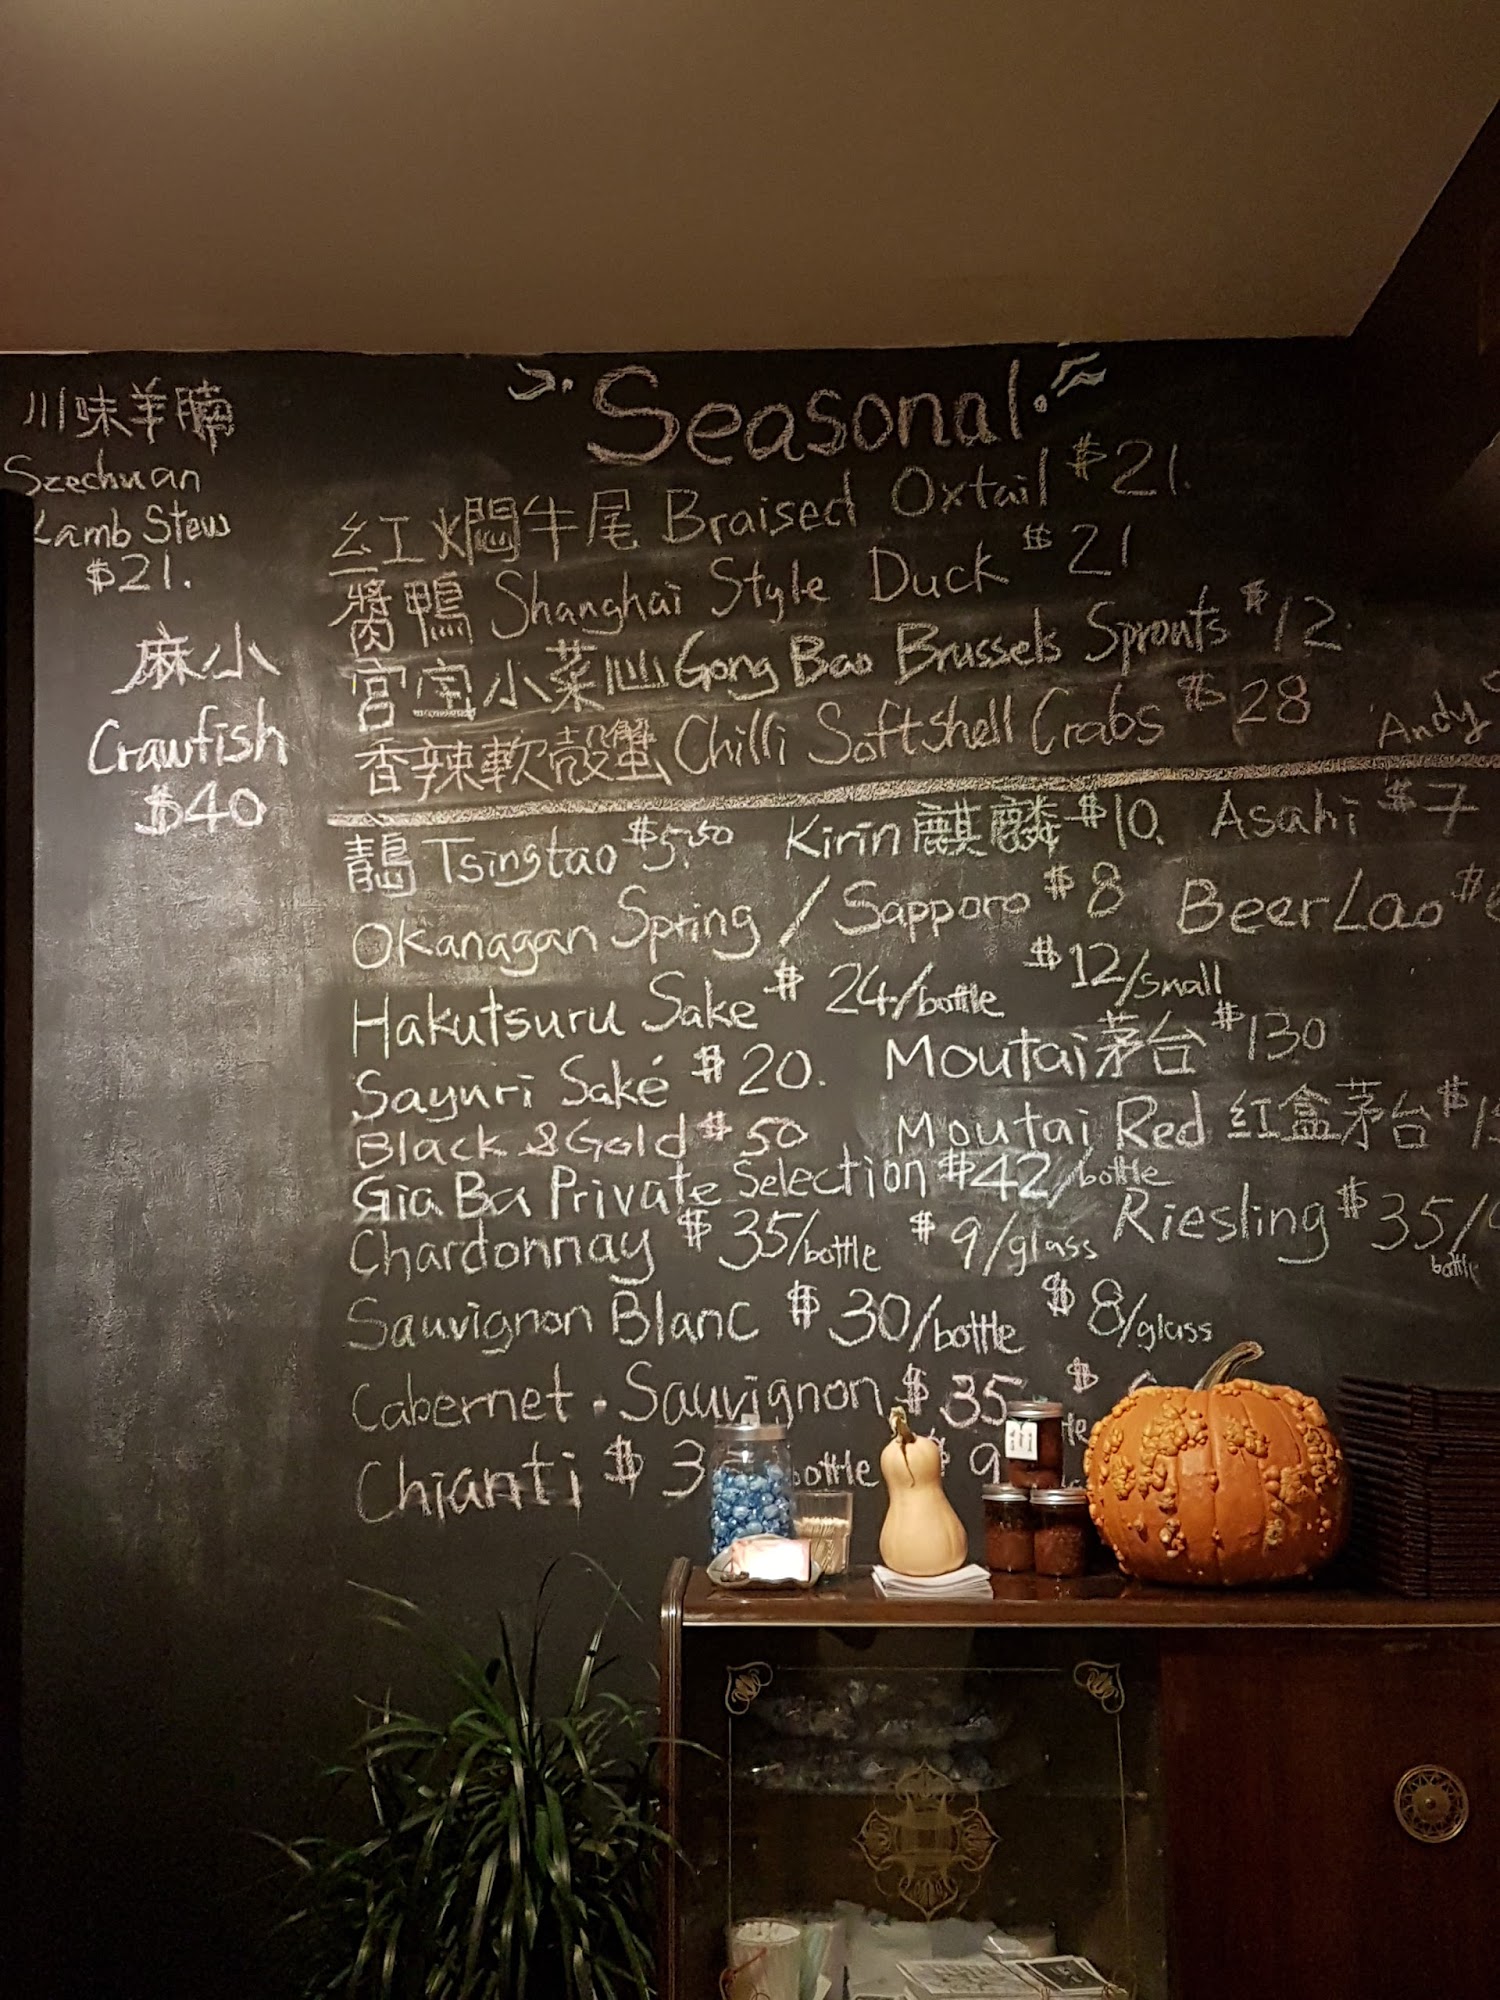 川味羊腩
Szechuan
Lamb Stew
$21.
麻小
Crawfish
$40
Seasonal
红焖牛尾 Braised Oxtail $21.
醬鴨 Shanghai Style Duck $21
宫宝小菜心 Gong Bao Brussels Sprouts $12
香辣軟殼蟹 Chilli Softshell Crabs $28
Andy
Tsingtao $5.50 Kirin 麒麟 $10. Asahi $7
Okanagan Spring / Sapporo $8 BeerLao $
Hakutsuru Sake $24/bottle $12/small
Sayuri Saké $20. Moutai 茅台 $130
Black & Gold $50 Moutai Red 红盒茅台 $
Gia Ba Private Selection $42/bottle
Chardonnay $35/bottle $9/glass Riesling $35/bottle
Sauvignon Blanc $30/bottle $8/glass
Cabernet . Sauvignon $35 $
Chianti $3 bottle $9